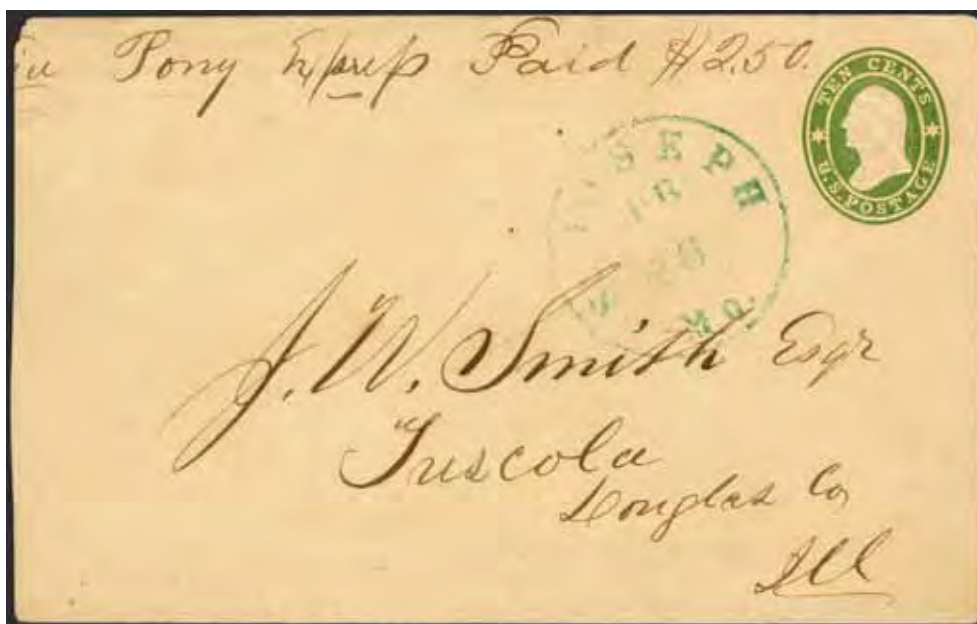 Pony Express Paid $2.50.
TEN CENTS
U.S. POSTAGE
JOSEPH
MO.
J. W. Smith Esqr
Tuscola
Douglas Co
Ill